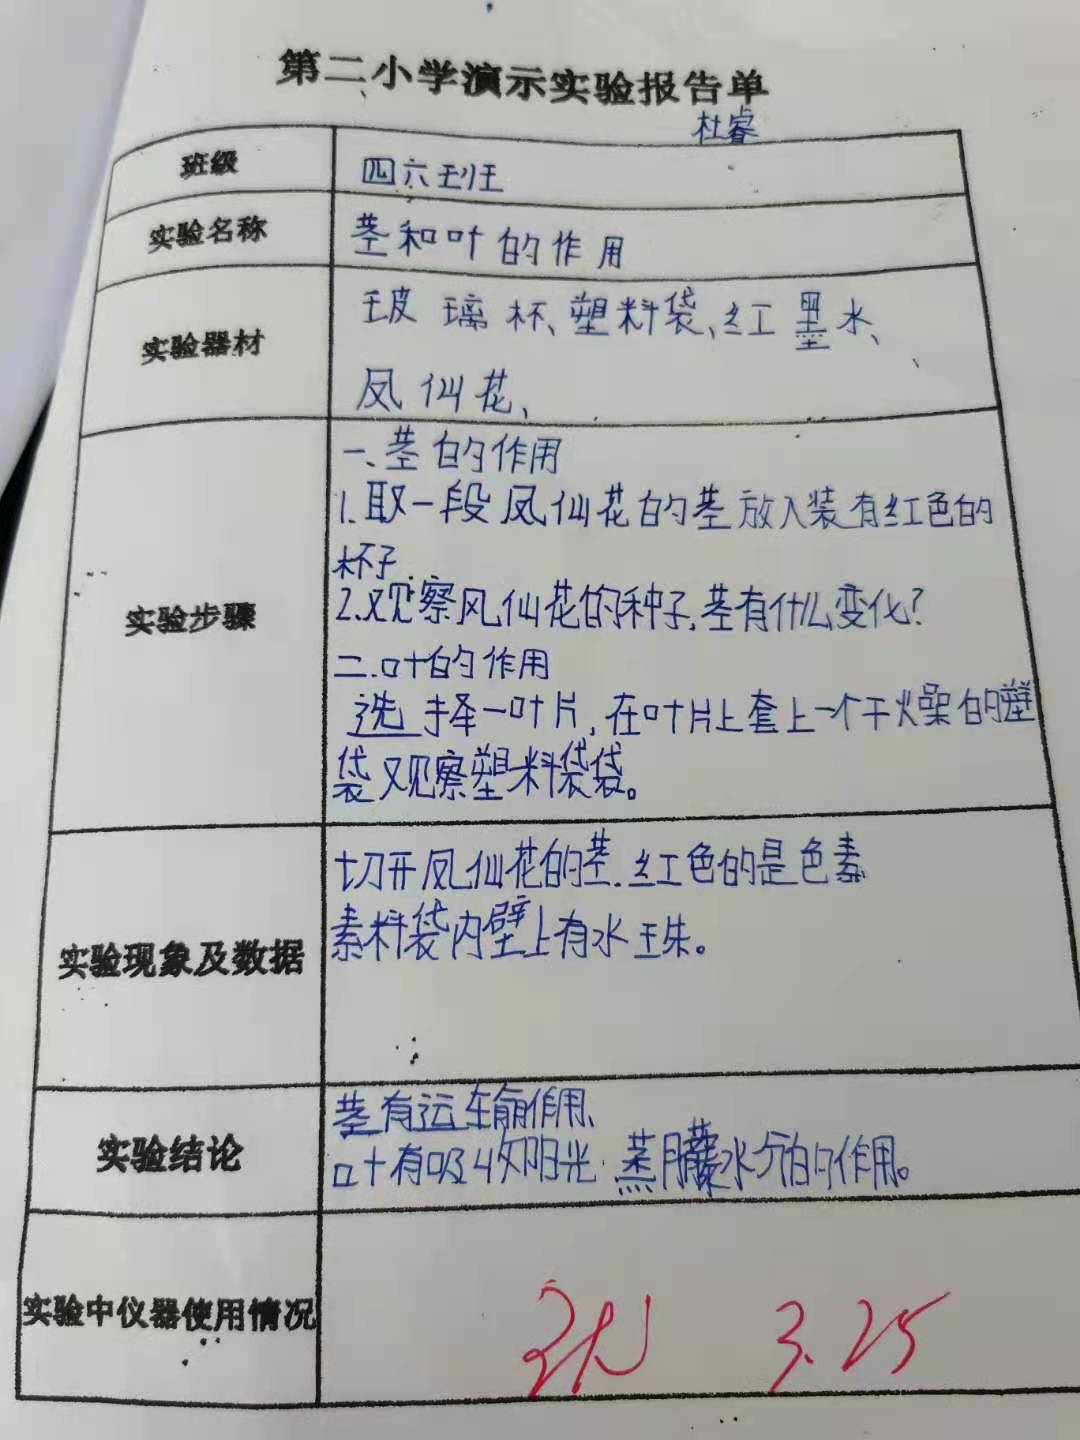 第二小学演示实验报告单
杜睿
班级 四六班
实验名称 茎和叶的作用
实验器材 玻璃杯、塑料袋、红墨水、
凤仙花、
实验步骤
一、茎的作用
1.取一段凤仙花的茎放入装有红色的
杯子.
2.观察风仙花的种子,茎有什么变化?
二.叶的作用
选择一叶片,在叶片上套上一个干燥的塑
袋观察塑料袋袋。
实验现象及数据
切开凤仙花的茎.红色的是色素
素料袋内壁上有水珠。
实验结论
茎有运输作用、
叶有吸收阳光.蒸腾水分的作用。
实验中仪器使用情况
3.25